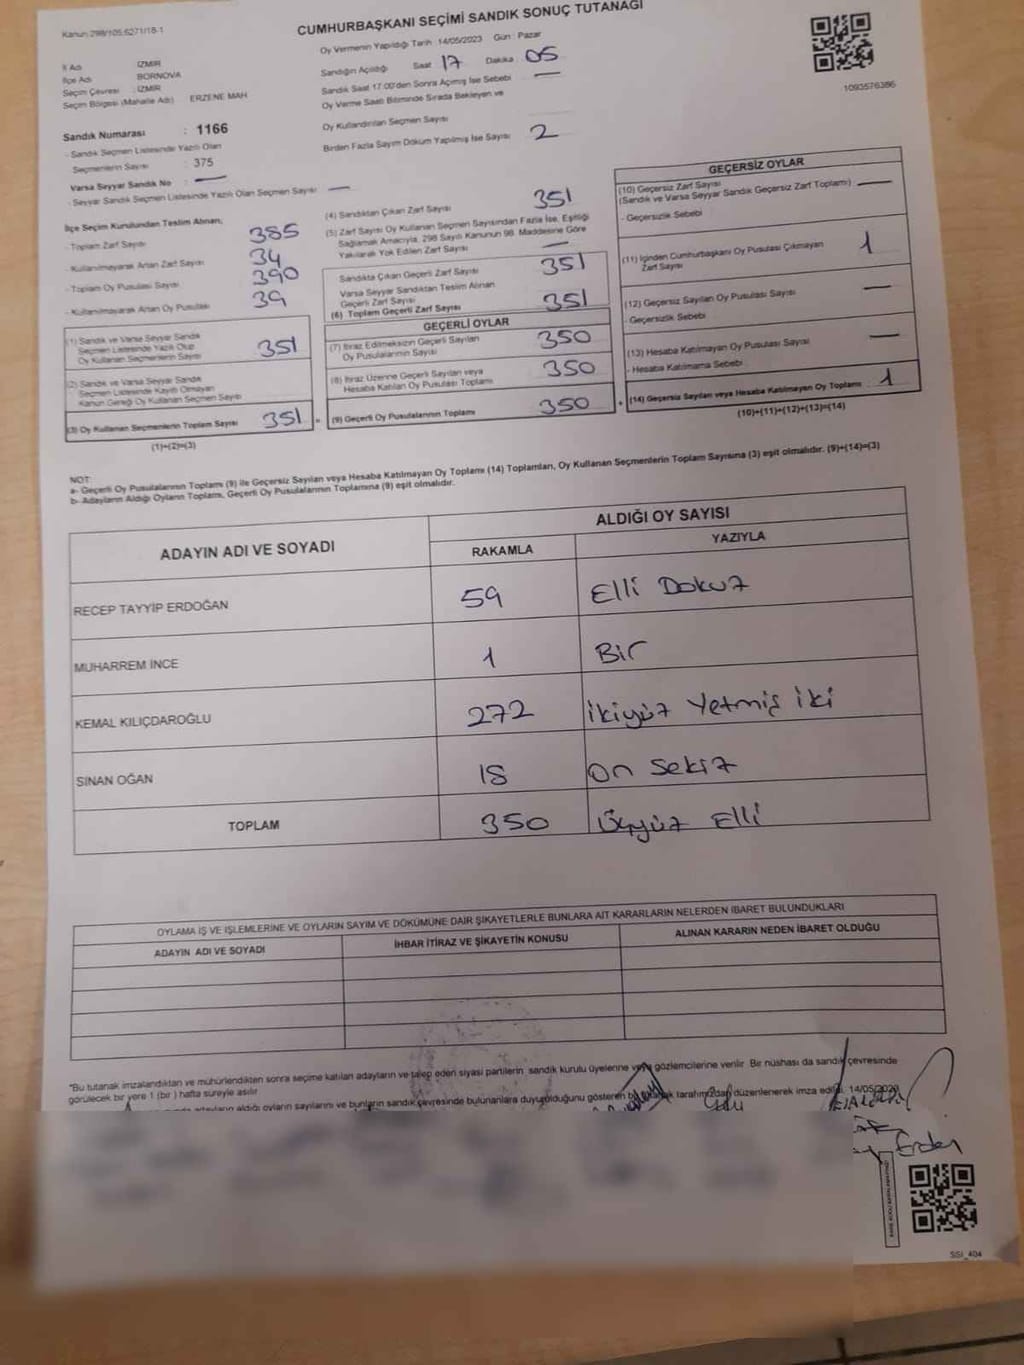 Kanun 298/105,6271/18-1
CUMHURBAŞKANI SEÇİMİ SANDIK SONUÇ TUTANAĞI
Oy Vermenin Yapıldığı Tarih :14/05/2023 Gün : Pazar
İl Adı : İZMİR
İlçe Adı : BORNOVA
Seçim Çevresi : İZMİR
Seçim Bölgesi (Mahalle Adı) ERZENE MAH
Sandık Numarası : 1166
- Sandık Seçmen Listesinde Yazılı Olan
Seçmenlerin Sayısı : 375
Varsa Seyyar Sandık No : —
- Seyyar Sandık Seçmen Listesinde Yazılı Olan Seçmen Sayısı —
Sandığın Açıldığı Saat 17 Dakika : 05
Sandık Saat 17:00'den Sonra Açılmış İse Sebebi —
Oy Verme Saati Bitiminde Sırada Bekleyen ve
Oy Kullandırılan Seçmen Sayısı
Birden Fazla Sayım Döküm Yapılmış İse Sayısı 2
1093576386
İlçe Seçim Kurulundan Teslim Alınan;
- Toplam Zarf Sayısı 385
- Kullanılmayarak Artan Zarf Sayısı 34
- Toplam Oy Pusulası Sayısı 390
- Kullanılmayarak Artan Oy Pusulası 39
(1) Sandık ve Varsa Seyyar Sandık
Seçmen Listesinde Yazılı Olup
Oy Kullanan Seçmenlerin Sayısı 351
(2) Sandık ve Varsa Seyyar Sandık
Seçmen Listesinde Kayıtlı Olmayan
Kanun Gereği Oy Kullanan Seçmen Sayısı
(3) Oy Kullanan Seçmenlerin Toplam Sayısı 351 =
(1)+(2)=(3)
(4) Sandıktan Çıkan Zarf Sayısı 351
(5) Zarf Sayısı Oy Kullanan Seçmen Sayısından Fazla İse, Eşitliği
Sağlamak Amacıyla, 298 Sayılı Kanunun 98. Maddesine Göre
Yakılarak Yok Edilen Zarf Sayısı —
Sandıkta Çıkan Geçerli Zarf Sayısı 351
Varsa Seyyar Sandıktan Teslim Alınan
Geçerli Zarf Sayısı
(6) Toplam Geçerli Zarf Sayısı 351
GEÇERLİ OYLAR
(7) İtiraz Edilmeksizin Geçerli Sayılan
Oy Pusulalarının Sayısı 350
(8) İtiraz Üzerine Geçerli Sayılan veya
Hesaba Katılan Oy Pusulası Toplamı 350
(9) Geçerli Oy Pusulalarının Toplamı 350 +
GEÇERSİZ OYLAR
(10) Geçersiz Zarf Sayısı
(Sandık ve Varsa Seyyar Sandık Geçersiz Zarf Toplamı) —
- Geçersizlik Sebebi
(11) İçinden Cumhurbaşkanı Oy Pusulası Çıkmayan
Zarf Sayısı 1
(12) Geçersiz Sayılan Oy Pusulası Sayısı —
- Geçersizlik Sebebi
(13) Hesaba Katılmayan Oy Pusulası Sayısı —
- Hesaba Katılmama Sebebi
(14) Geçersiz Sayılan veya Hesaba Katılmayan Oy Toplamı 1
(10)+(11)+(12)+(13)=(14)
NOT:
a- Geçerli Oy Pusulalarının Toplamı (9) ile Geçersiz Sayılan veya Hesaba Katılmayan Oy Toplamı (14) Toplamları, Oy Kullanan Seçmenlerin Toplam Sayısına (3) eşit olmalıdır. (9)+(14)=(3)
b- Adayların Aldığı Oyların Toplamı, Geçerli Oy Pusulalarının Toplamına (9) eşit olmalıdır.
ADAYIN ADI VE SOYADI
ALDIĞI OY SAYISI
RAKAMLA YAZIYLA
RECEP TAYYİP ERDOĞAN 59 Elli Dokuz
MUHARREM İNCE 1 Bir
KEMAL KILIÇDAROĞLU 272 İkiyüz Yetmiş iki
SİNAN OĞAN 18 On Sekiz
TOPLAM 350 Üçyüz Elli
OYLAMA İŞ VE İŞLEMLERİNE VE OYLARIN SAYIM VE DÖKÜMÜNE DAİR ŞİKAYETLERLE BUNLARA AİT KARARLARIN NELERDEN İBARET BULUNDUKLARI
ADAYIN ADI VE SOYADI İHBAR İTİRAZ VE ŞİKAYETİN KONUSU ALINAN KARARIN NEDEN İBARET OLDUĞU
*Bu tutanak imzalandıktan ve mühürlendikten sonra seçime katılan adayların ve talep eden siyasi partilerin sandık kurulu üyelerine veya gözlemcilerine verilir Bir nüshası da sandık çevresinde
görülecek bir yere 1 (bir ) hafta süreyle asılır
adayların aldığı oyların sayılarını ve bunların sandık çevresinde bulunanlara duyurulduğunu gösteren tarafımızdan düzenlenerek imza edildi. 14/05/2023
Erden
SSI_404